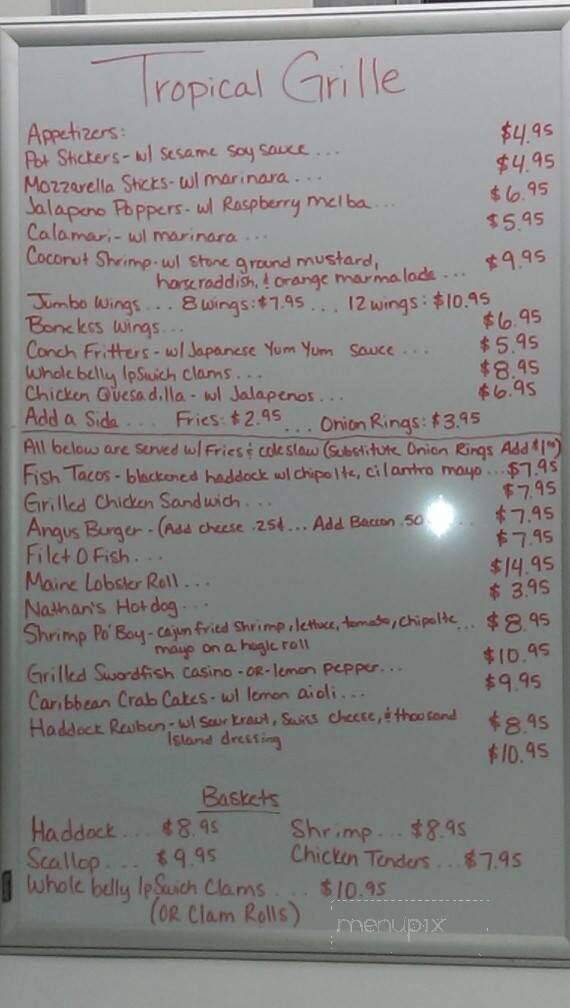 Tropical Grille
Appetizers:
Pot Stickers - w/ sesame soy sauce ... $4.95
Mozzarella Sticks - w/ marinara ... $4.95
Jalapeno Poppers - w/ Raspberry melba ... $6.95
Calamari - w/ marinara ... $5.95
Coconut Shrimp - w/ stone ground mustard, $9.95
horseraddish, & orange marmalade ...
Jumbo Wings ... 8 wings: $7.95 ... 12 wings: $10.95
Boneless Wings ... $6.95
Conch Fritters - w/ Japanese Yum Yum sauce ... $5.95
Whole belly IpSwich clams ... $8.95
Chicken Quesadilla - w/ Jalapenos ... $6.95
Add a Side ... Fries: $2.95 ... Onion Rings: $3.95
All below are served w/ Fries & coleslaw (Substitute Onion Rings Add $1⁰⁰)
Fish Tacos - blackened haddock w/ chipolte, cilantro mayo ... $7.95
Grilled Chicken Sandwich ... $7.95
Angus Burger - (Add cheese .25¢ ... Add Baccon .50 $7.95
Filet O Fish ... $7.95
Maine Lobster Roll ... $14.95
Nathan's Hotdog ... $3.95
Shrimp Po'Boy - cajun fried shrimp, lettuce, tomato, chipolte ... $8.95
mayo on a hogie roll
Grilled Swordfish casino - OR - lemon pepper ... $10.95
Caribbean Crab Cakes - w/ lemon aioli ... $9.95
Haddock Reuben - w/ sour kraut, Swiss cheese, & thousand $8.95
Island dressing
$10.95
Baskets
Haddock ... $8.95 Shrimp ... $8.95
Scallop ... $9.95 Chicken Tenders ... $7.95
Whole belly IpSwich Clams ... $10.95
(OR Clam Rolls)
menupix